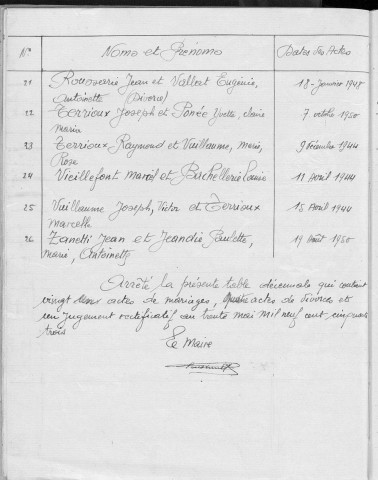 N° Noms et Prenoms Dates des Actes
21 Roussarie Jean et Vallert Eugénie, 18 Janvier 1948
Antoinette (Divorce)
22 Terrioux Joseph et Ponée Yvette, 7 octobre 1950
Maria
23 Terrioux Raymond et Vuillaume, Marie, 9 Décembre 1944
Rose
24 Vieillefont Marcel et Bachellerie Louise 11 Avril 1944
25 Vuillaume Joseph, Victor et Terrioux 15 Avril 1944
Marcelle
26 Zanetti Jean et Jeandié Paulette, 19 Août 1950
Marie, Antoinette
Arrêté la présente table décennale qui contient
vingt deux actes de mariages, quatre actes de divorces et
un jugement rectificatif au trente mai mil neuf cent cinquante
trois
Le Maire